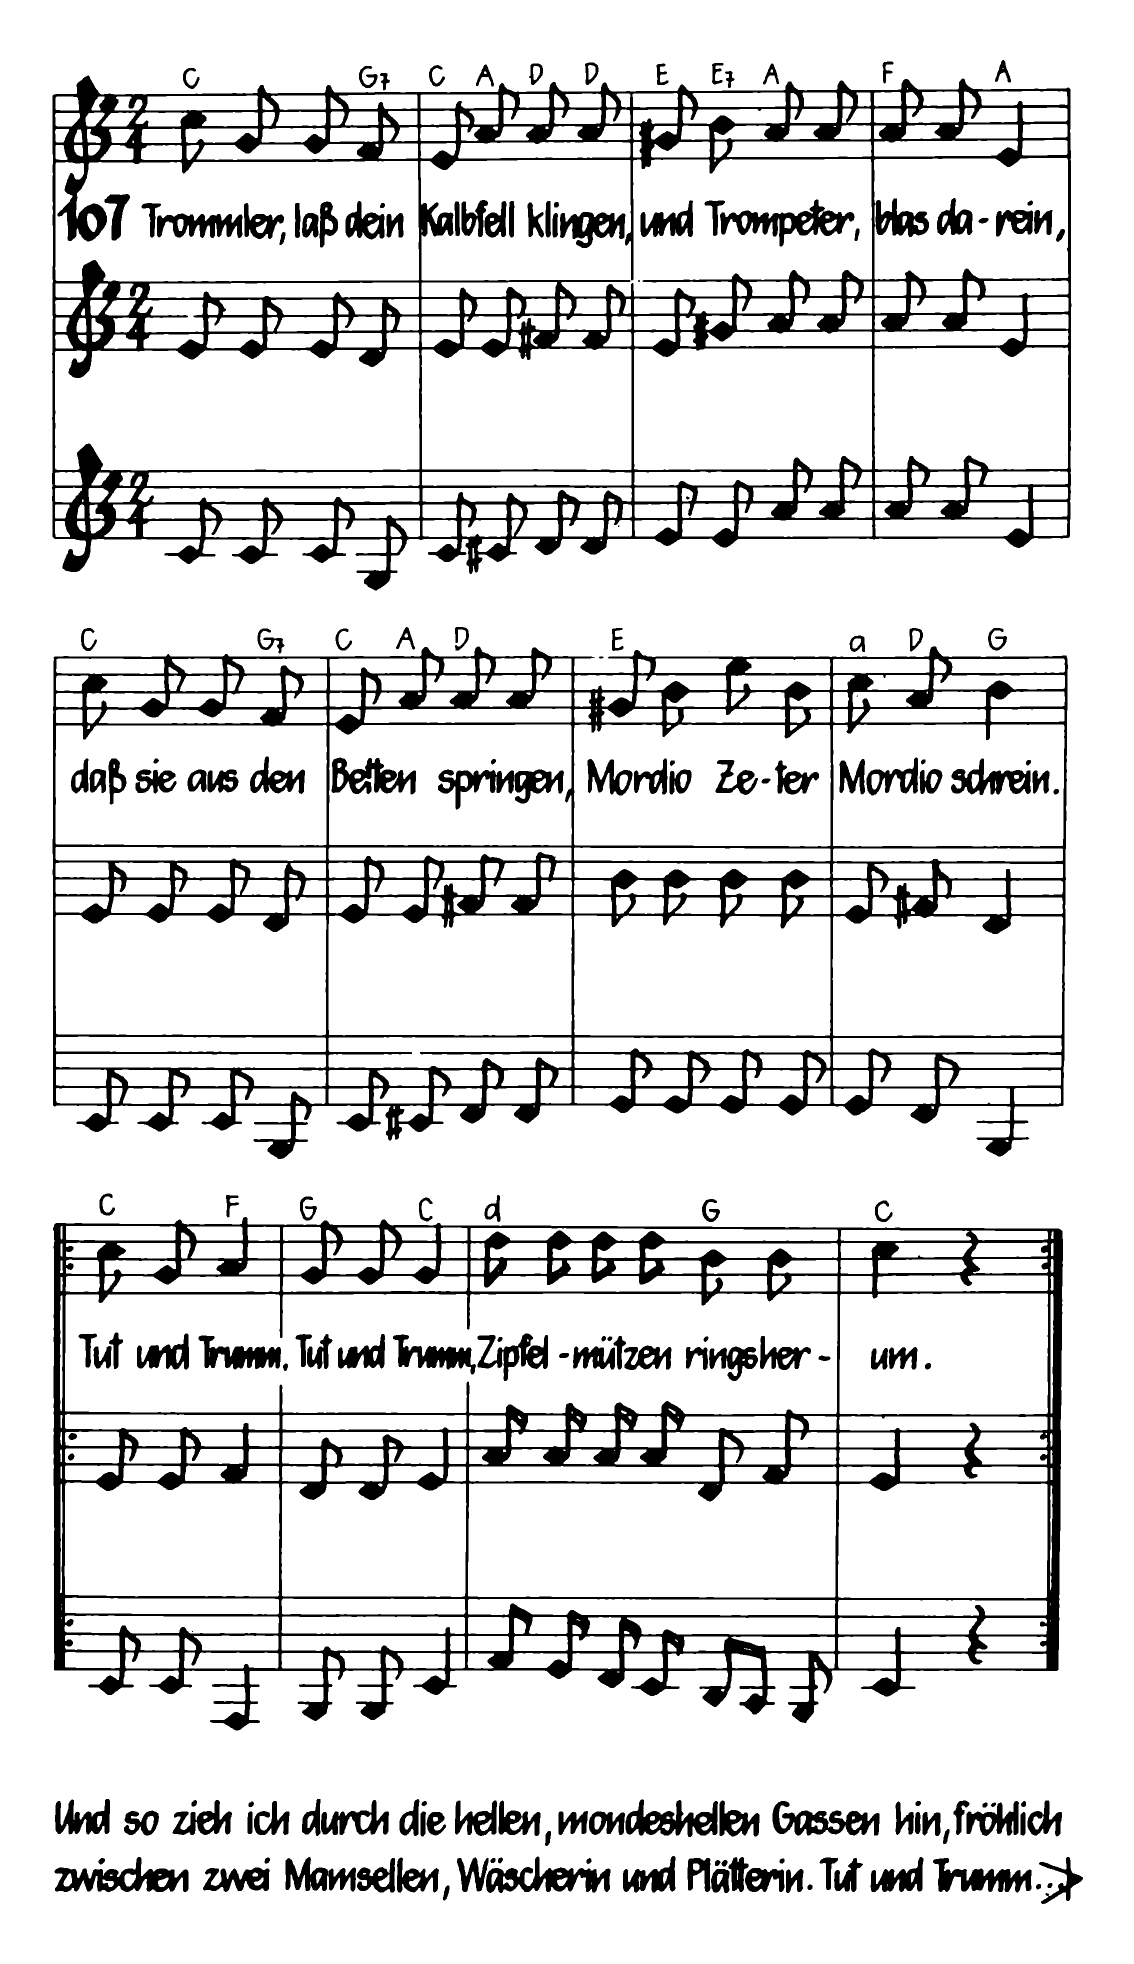 C G7 C A D D E E7 A F A
107 Trommler, laß dein Kalbfell klingen, und Trompeter, blas da-rein,
C G7 C A D E a D G
daß sie aus den Betten springen, Mordio Ze-ter Mordio schrein.
C F G C d G C
Tut und Trumm. Tut und Trumm, Zipfel-mützen ringsher- um.
Und so zieh ich durch die hellen, mondeshellen Gassen hin, fröhlich
zwischen zwei Mamsellen, Wäscherin und Plätterin. Tut und Trumm...